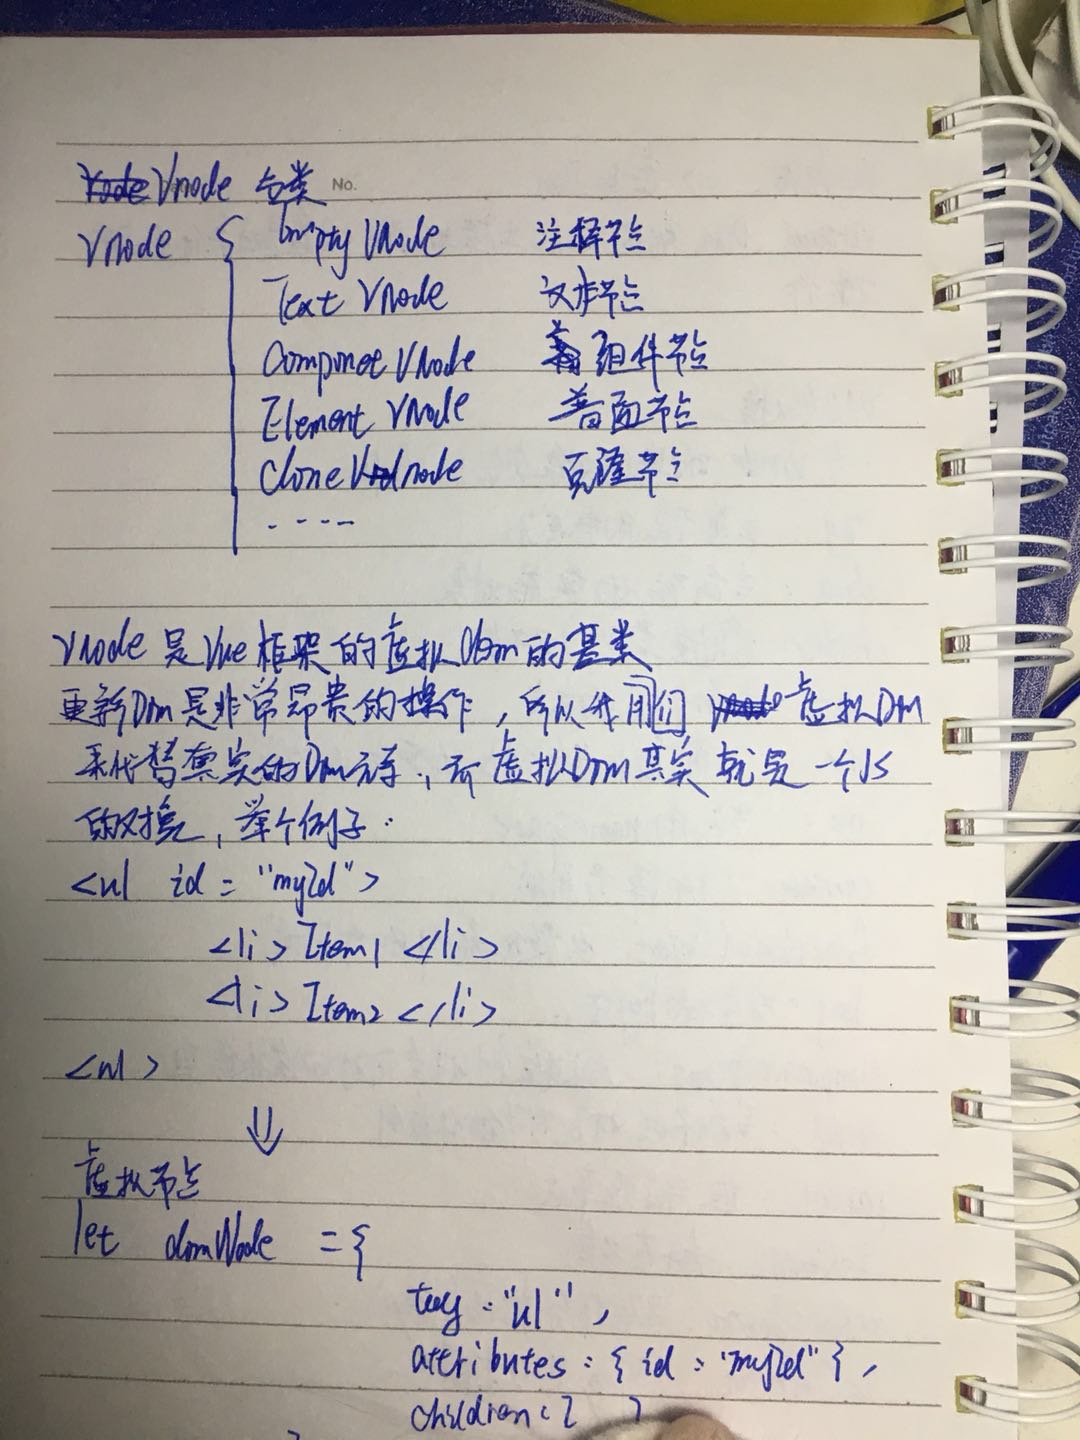 Vnode 分类 No.
Vnode { Empty VNode 注释节点
Text VNode 文本节点
Componet VNode 组件节点
Element VNode 普通节点
Clone Vnode 克隆节点
.....
Vnode 是 Vue 框架的虚拟 dom 的基类
更新Dom是非常昂贵的操作，所以我们用 虚拟Dom
来代替真实的Dom元素，而虚拟Dom其实就是一个JS
的对象，举个例子.
<ul id = "myId">
<li> Item1 </li>
<li> Item2 </li>
<ul>
⇓
虚拟节点
let domNode = {
tag : "ul",
attributes : { id : "myId" },
children : [ ]